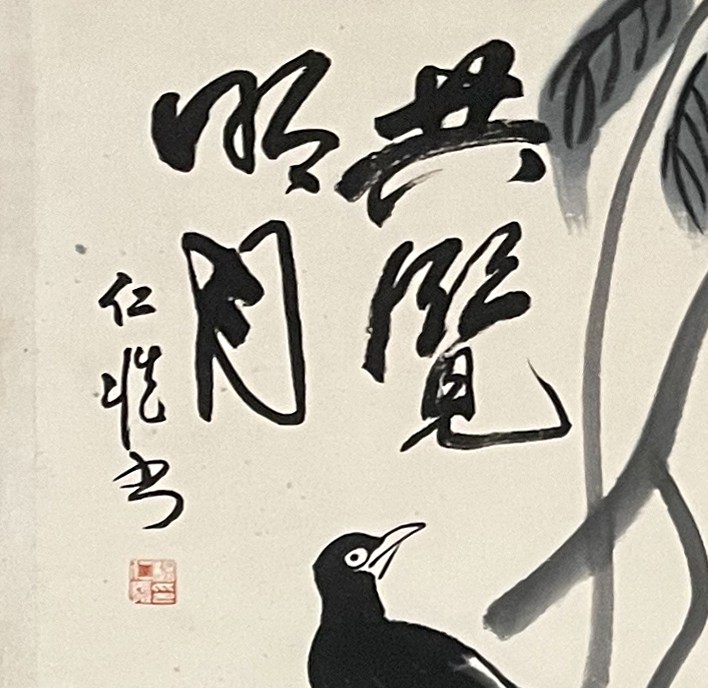 共覽
明月
仁愷書